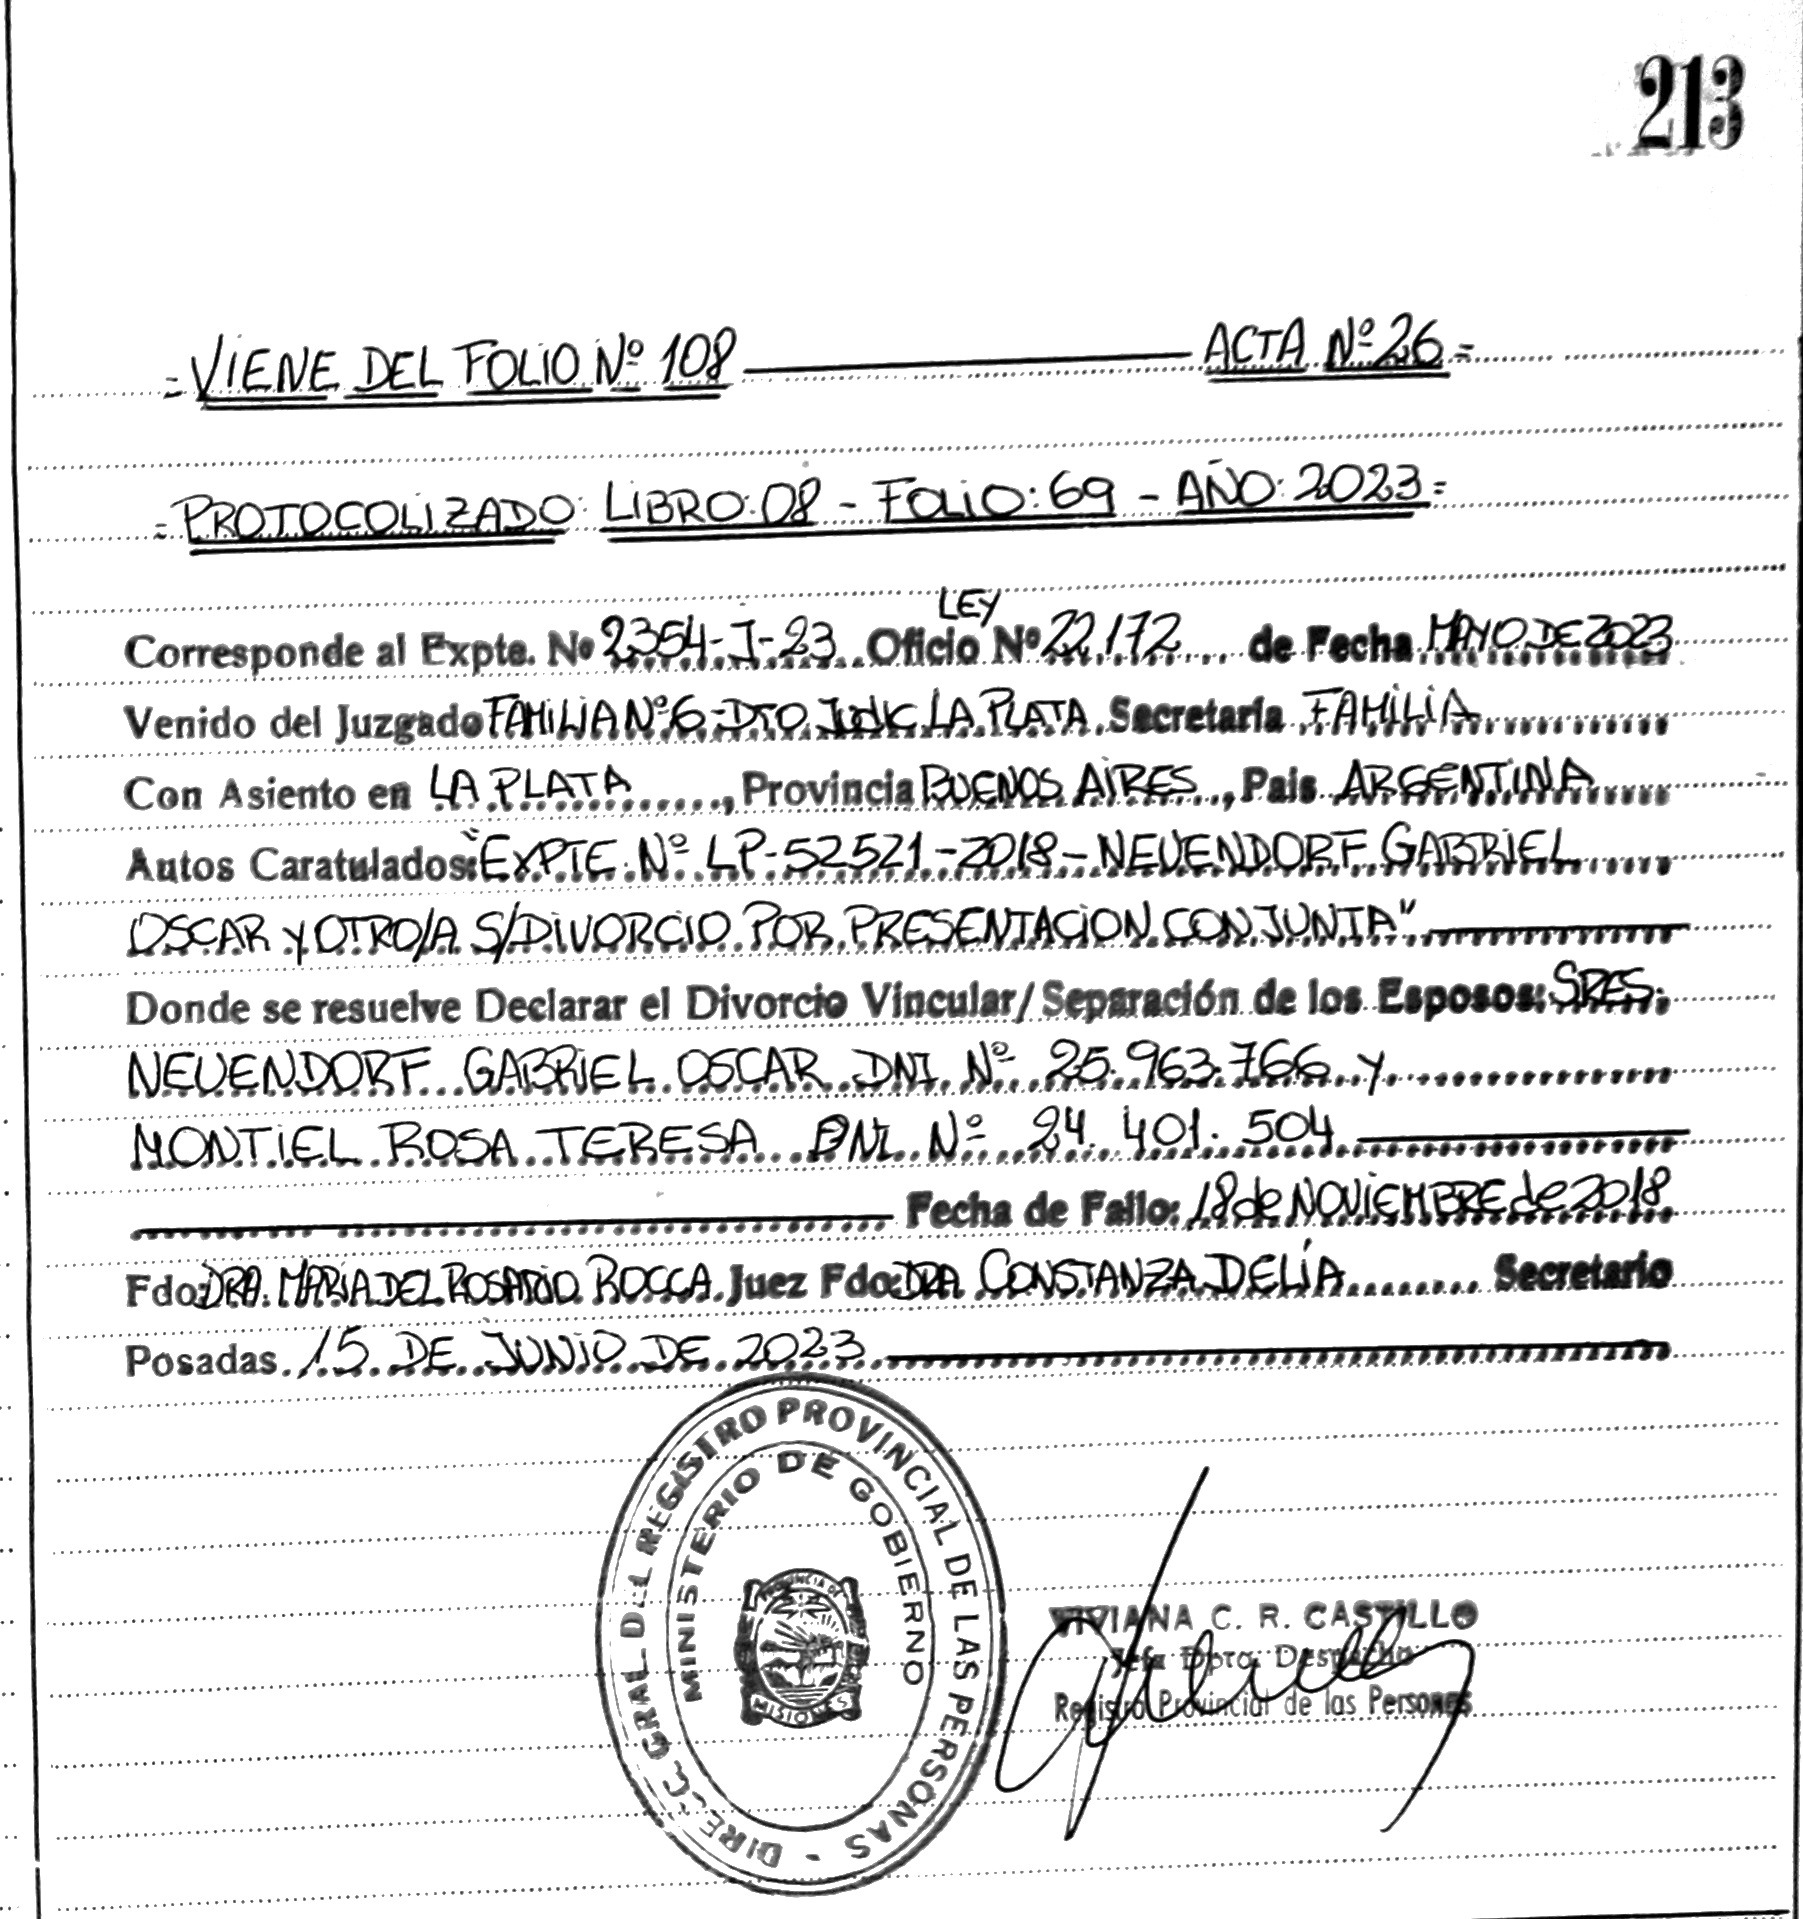 213
= VIENE DEL FOLIO Nº 108 ACTA Nº 26 =
= PROTOCOLIZADO: LIBRO: 08 - FOLIO: 69 - AÑO: 2023 =
LEY
Corresponde al Expte. Nº 2354-I-23 Oficio Nº 22.172 de Fecha MAYO DE 2023
Venido del Juzgado FAMILIA Nº 6 - DTO Judic LA PLATA Secretaría FAMILIA
Con Asiento en LA PLATA, Provincia BUENOS AIRES, País ARGENTINA
Autos Caratulados: "EXPTE. Nº LP-52521-2018-NEUENDORF GABRIEL
OSCAR Y OTRO/A S/DIVORCIO POR PRESENTACION CONJUNTA"
Donde se resuelve Declarar el Divorcio Vincular/Separación de los Esposos: SRES.
NEUENDORF GABRIEL OSCAR DNI Nº 25.963.766 y
MONTIEL ROSA TERESA DNI. Nº 24.401.504
Fecha de Fallo: 18 de NOVIEMBRE de 2018
Fdo: DRA. MARIA DEL ROSARIO ROCCA Juez Fdo: DRA CONSTANZA DELÍA Secretario
Posadas 15 DE JUNIO DE 2023
DIRECC. GRAL DEL REGISTRO PROVINCIAL DE LAS PERSONAS -
MINISTERIO DE GOBIERNO
PROVINCIA DE
MISIONES
VIVIANA C. R. CASTILLO
Jefa Dpto. Despacho
Registro Provincial de las Personas